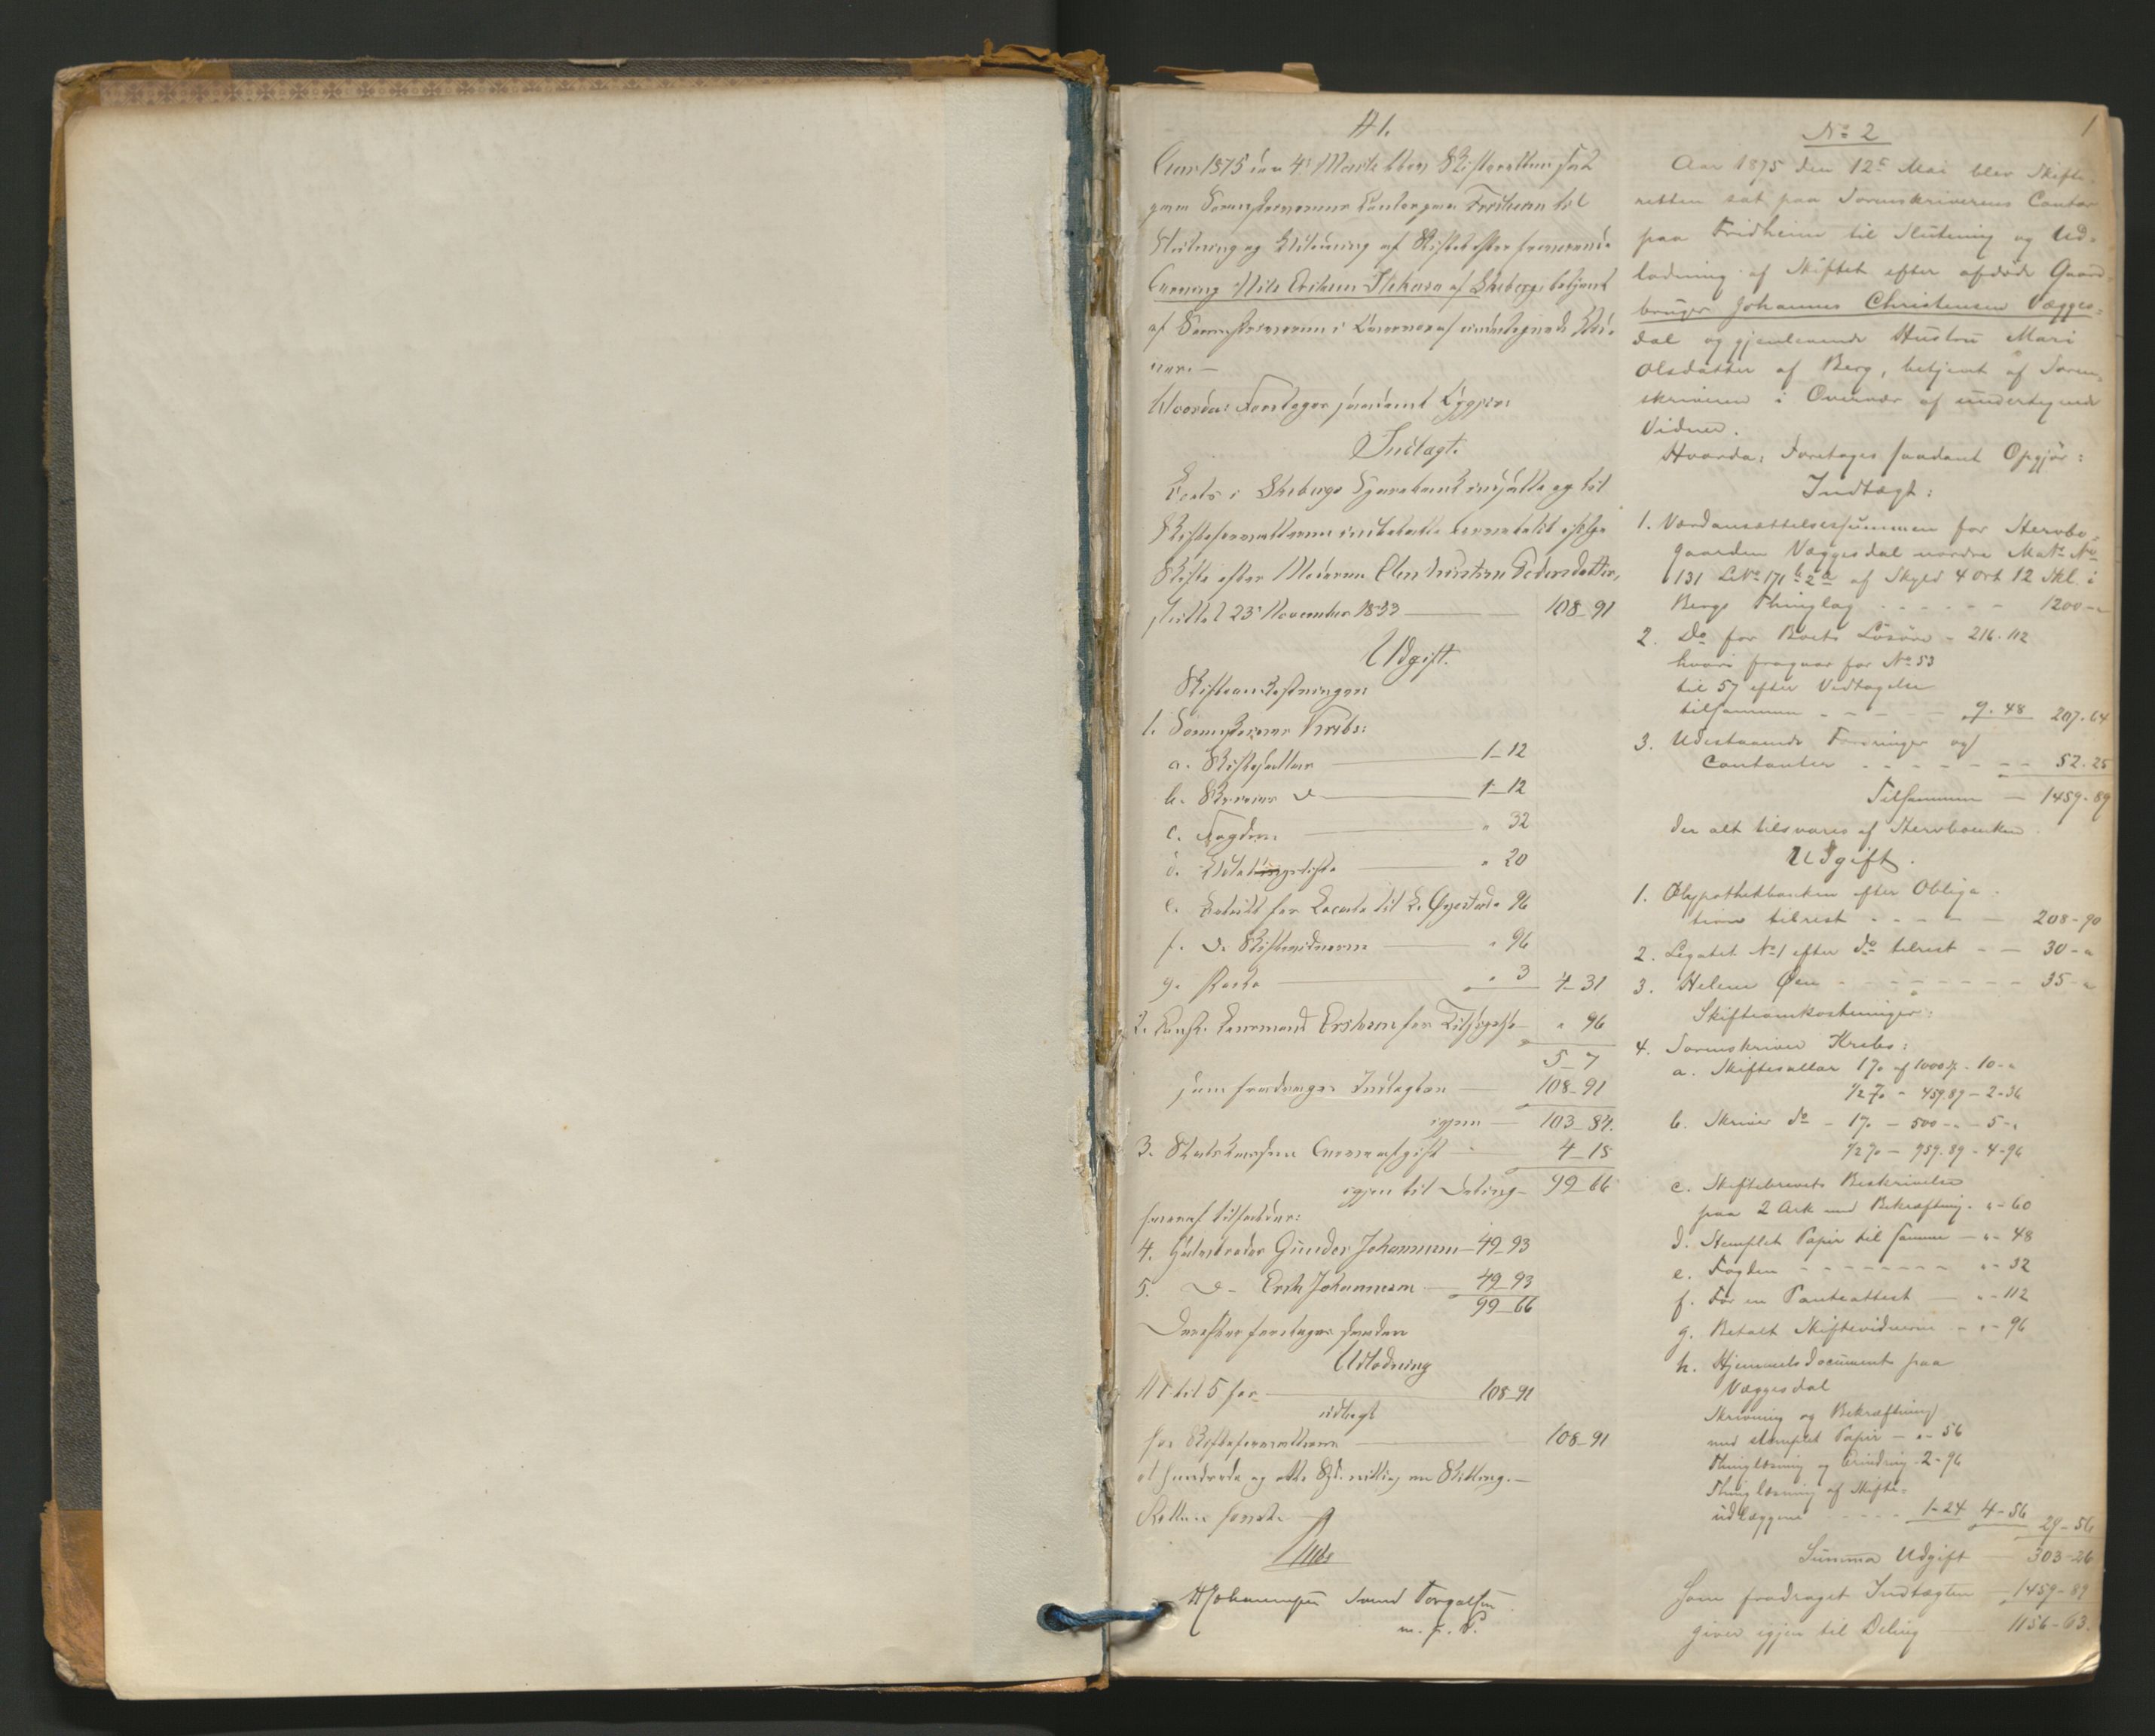 № 1.
Aar 1875 den 4de Marts blev Skifteretten sat
paa Sorenskriverens Contor paa Fridheim til
Slutning og Udlodning af Skiftet efter
Nils Eriksen af Skeberg betjent
af Sorenskriveren i Overvær af undertegnede Vid-
ner.
Hvorda: Foretoges saadant Opgjør:
Indtægt.
Boets i Skebergs Sparebank indsatte og til
Skifteforvalteren indbetalte
Skifte efter Moderen Christine Pedersdatter,
sluttet 23de November 1853 — 108-91
Udgift.
Skifteomkostninger
1. Sorenskriver Krebs:
a. Skiftesallær — 1-12
b. Skriver do — 1-12
c. Fogden — " 32
d. — " 20
e. Betalt for til 96
f. do Skiftevidnerne — " 96
g. Porto — " 3 4-31
2. Eriksen for — " 96
5-7
som fradrages Indtægten — 108-91
igjen — 103-84.
3. Statskassen Arveafgift - 4-18
igjen til Deling - 99-66
hvoraf tilfalder:
4. Gunder Johannesen - 49-93
5. do - Erik Johannesen — 49-93
99-66
Derefter foretoges saadan
Udlodning
№ 1 til 5 for — 108-91
udlagt
hos Skifteforvalteren — 108-91
et hundrede og otte Spd. nitti en Skilling. —
Retten hævet.
Krebs
H Johannesen Torgalsen
m. f. P.
1
№ 2
Aar 1875 den 12te Mai blev Skifte-
retten sat paa Sorenskriverens Contor
paa Fridheim til Slutning og Ud-
lodning af Skiftet efter afdøde Gaard-
bruger Johannes Christensen Vægges-
dal og gjenlevende Hustru Mari
Olsdatter af Berg, betjent af Soren-
skriveren i Overvær af undertegnede
Vidner.
Hvorda: Foretoges saadant Opgjør:
Indtægt:
1. Værdansættelsessummen for Stervbo-
gaarden Væggesdal nordre Matr. No
131 LNo 171 b 2 a af Skyld 4 ort 12 Skl. i
Bergs Thinglag - - - - - 1200 - "
2. Do for Boets Løsøre - 216. 112
hvori fragaar for No 53
til 57 efter Vedtagelse
tilsammen - - - - 9. 48 207. 64
3. Udestaaende Fordringer og
Contanter - - - - - - - 52. 25
Tilsammen — 1459-89
der alt tilsvares af Stervboenken.
Udgift.
1. Hypothekbanken efter Obliga-
tion tilrest - - - - - 208-90
2. Legatet No 1 efter do tilrest - - 30 - "
3. Helene Øen - - - - - - - - 35 - "
Skifteomkostninger:
4. Sorenskriver Krebs:
a. Skiftesallær 1% af 1000 - 10 - "
1/2 % - 459.89 - 2-36
b. Skriver do - 1% - 500 - " - 5 - "
1/2 % - 959.89 - 4-96
c. Skiftebrevets Beskrivelse
paa 2 Ark med Bekræftning - " - 60
d. Stemplet Papir til samme - " - 48
e. Fogden - - - - - - - " - 32
f. For en Panteattest — " - 112
g. Betalt Skiftevidnerne - " - 96
h. Hjemmelsdocument paa
Væggesdal
Skrivning og Bekræftning
med stemplet Papir - " - 56
Thinglæsning og Erindring - 2-96
Thinglæsning af Skifte-
udlæggene - - - - 1-24 4-56 29-56
Summa Udgift 303-26
som fradraget Indtægten - 1459-89
giver igjen til Deling — 1156-63.